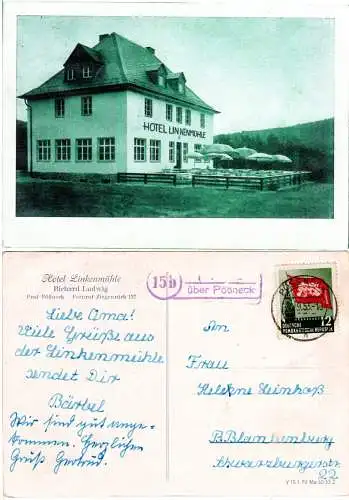 HOTEL LINKENMÜHLE
Hotel Linkenmühle
Richard Ludwig
Post Pößneck Fernruf Ziegenrück 157
15b
über Pößneck
DEUTSCHE
DEMOKRATISCHE REPUBLIK
12
Liebe Oma!
Viele Grüße aus
der Linkenmühle
sendet Dir
Bärbel
Wir sind gut ange-
kommen. Herzlichen
Gruß Gertrud.
An
Frau
Helene Leinhoß
B. Blankenburg
Schwarzburgerstr
22